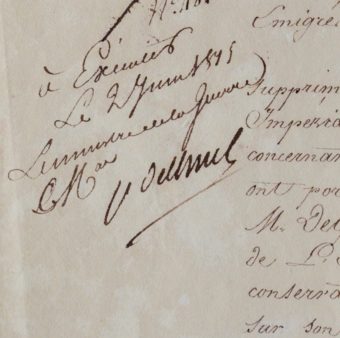 N.º
émigré
à Exécuter
Le 2 Juin 1815
Le ministre de la Guerre
Mal
Supprim
Impéria
concernan
ont por
M. De
de P.
conserva
sur son